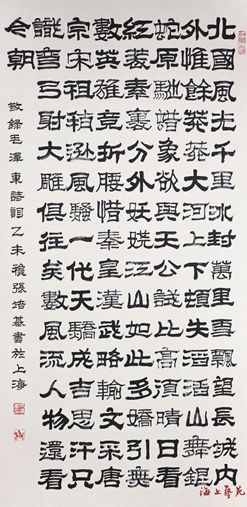 北國風光千里冰封萬里雪飄望長城內
外惟餘莽莽大河上下頓失滔滔山舞銀
蛇原馳蜡象欲與天公試比高須晴日看
紅裝素裹分外妖嬈江山如此多嬌引無
數英雄競折腰惜秦皇漢武略輸文采唐
宗宋祖稍遜風騷一代天驕成吉思汗只
識彎弓射大雕俱往矣數風流人物還看
今朝
敬錄毛澤東詩詞乙未穐張培基書於上海
海上藝苑